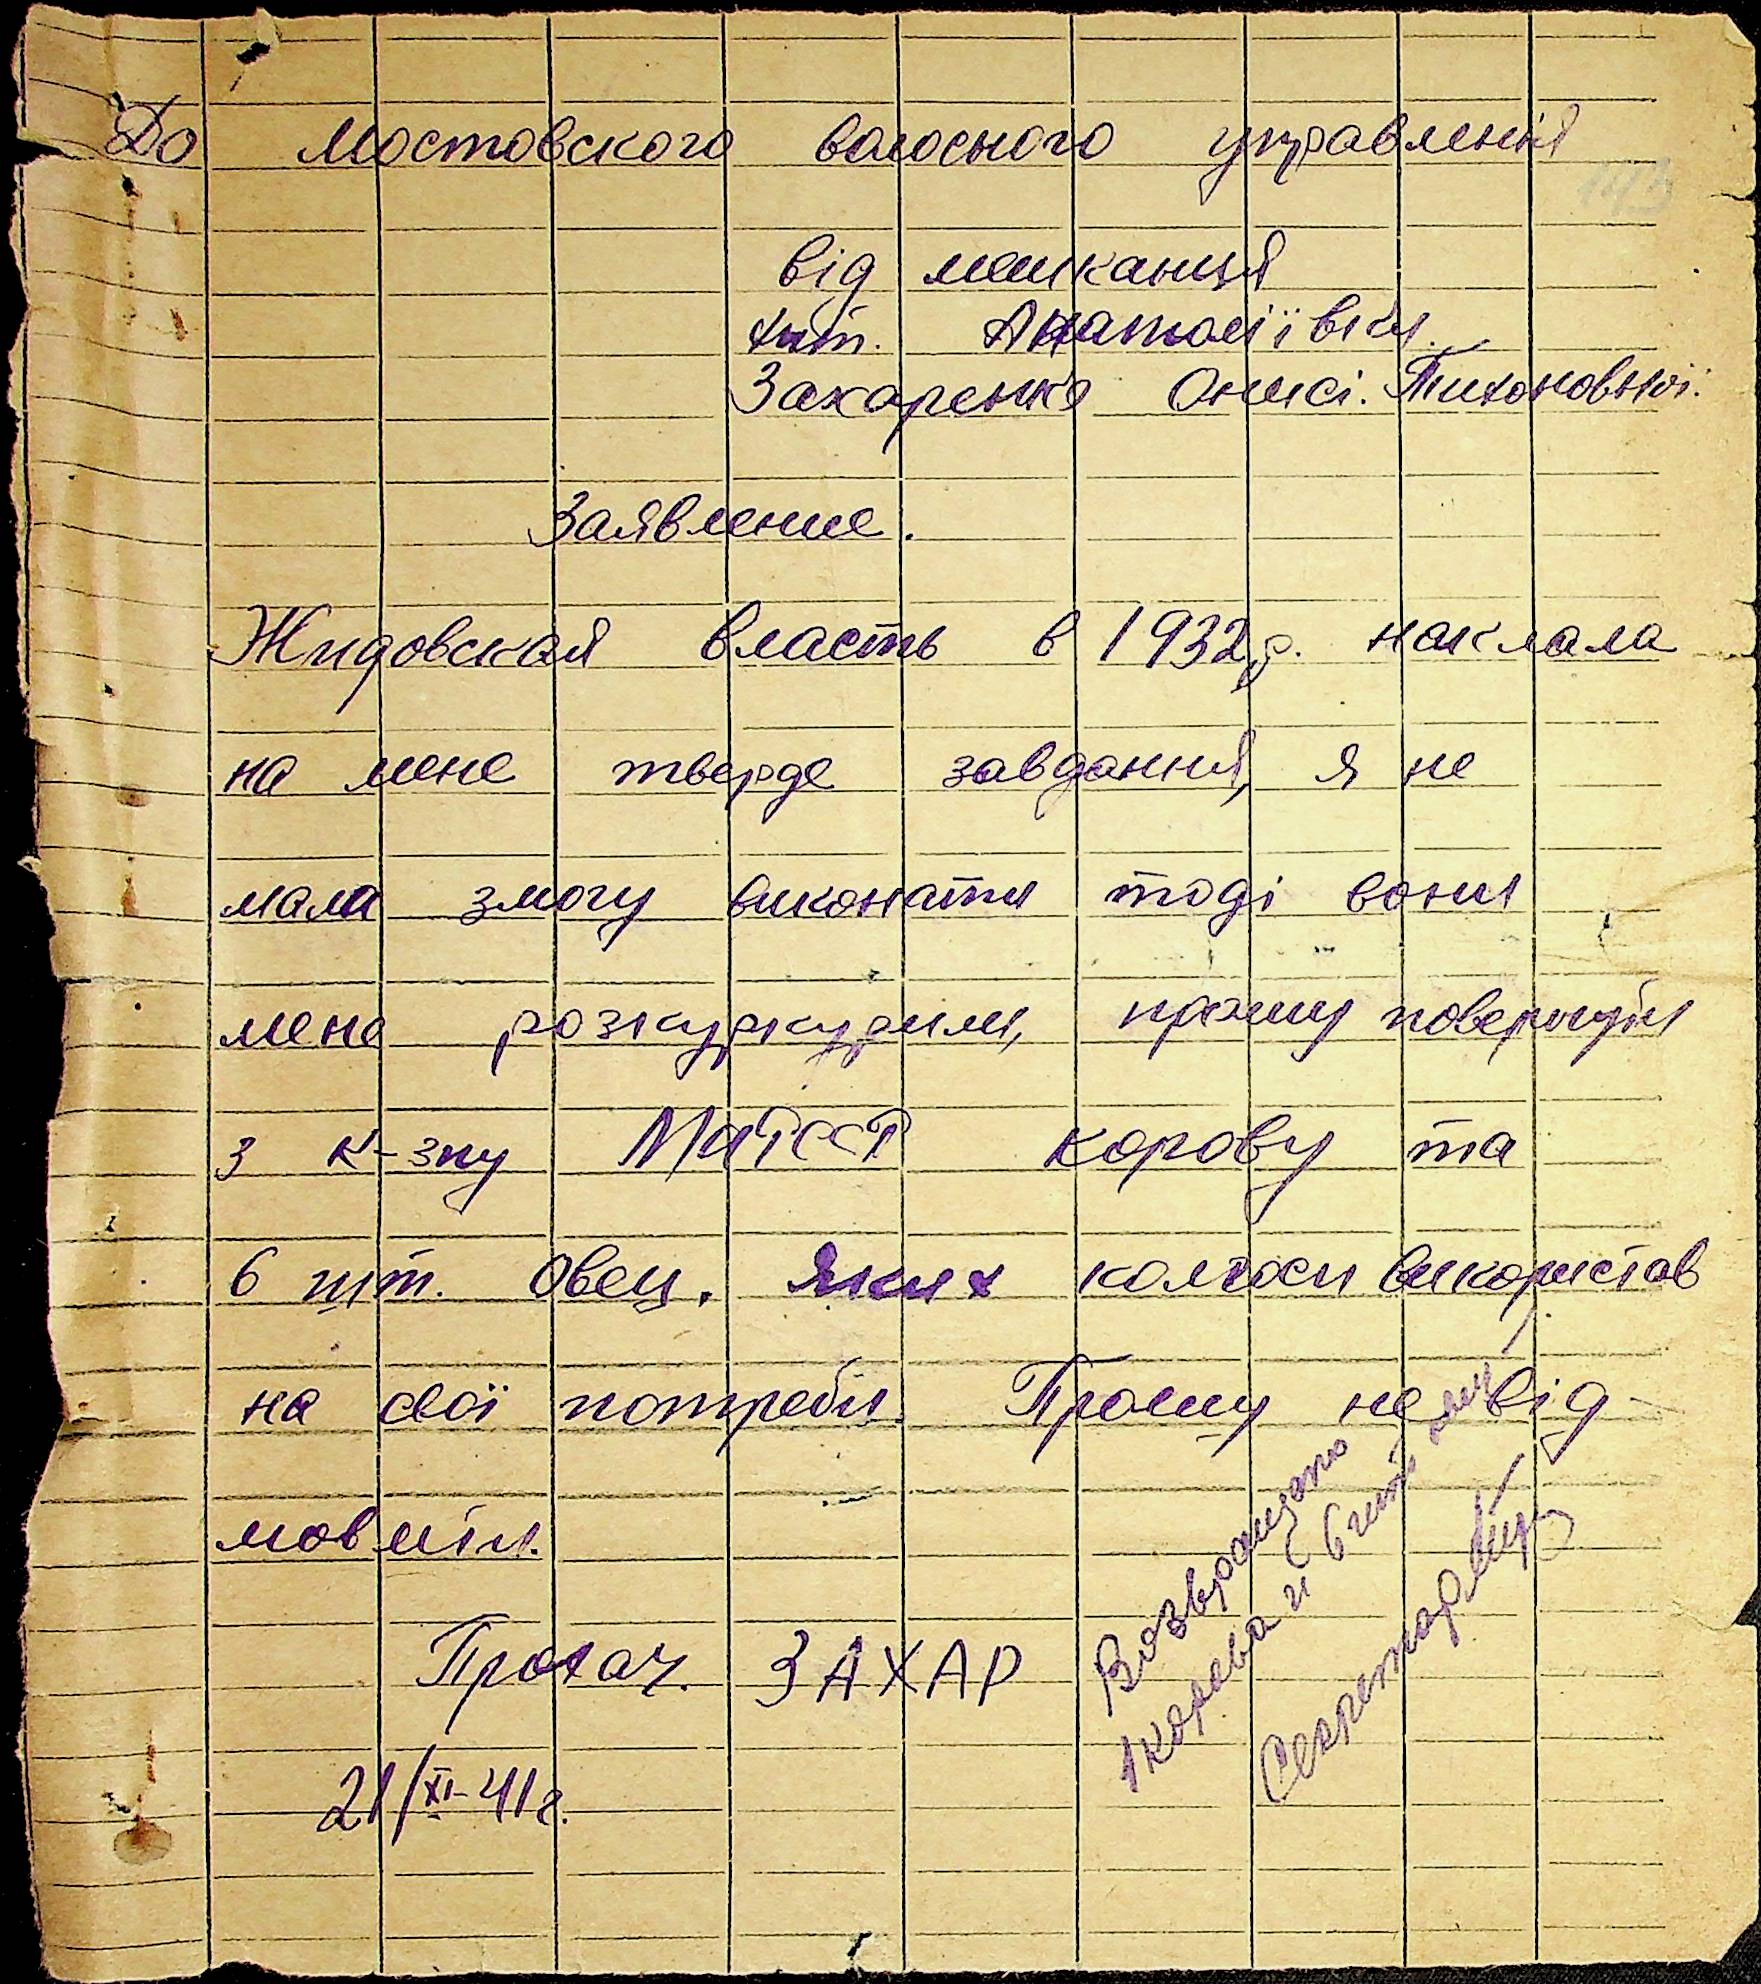 До Мостовского волосного управления
від мешканця
хут. Анатоліївки.
Захаренко Онисі. Тихоновної.
Заявление.
Жидовская власть в 1932 р. наклала
на мене тверде завдання, я не
мала змогу виконати тоді вони
мене розкуркурили, прошу повернути
з к-зпу МАРССР корову та
6 шт. овец. яких колгосп використав
на свої потреби. Прошу не від-
мовити.
Прохач. ЗАХАР
21/XI-41 г.
Возвращено
1 корова и 6 шт овец
Секретарь